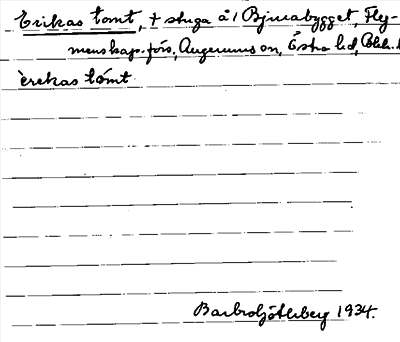 Erikas tomt, + stuga å 1 Bjurabygget, Fly-
menskap.förs, Augerums sn, Östra hd, Blek. l
èrekas tómt
Barbro Söderberg 1934.